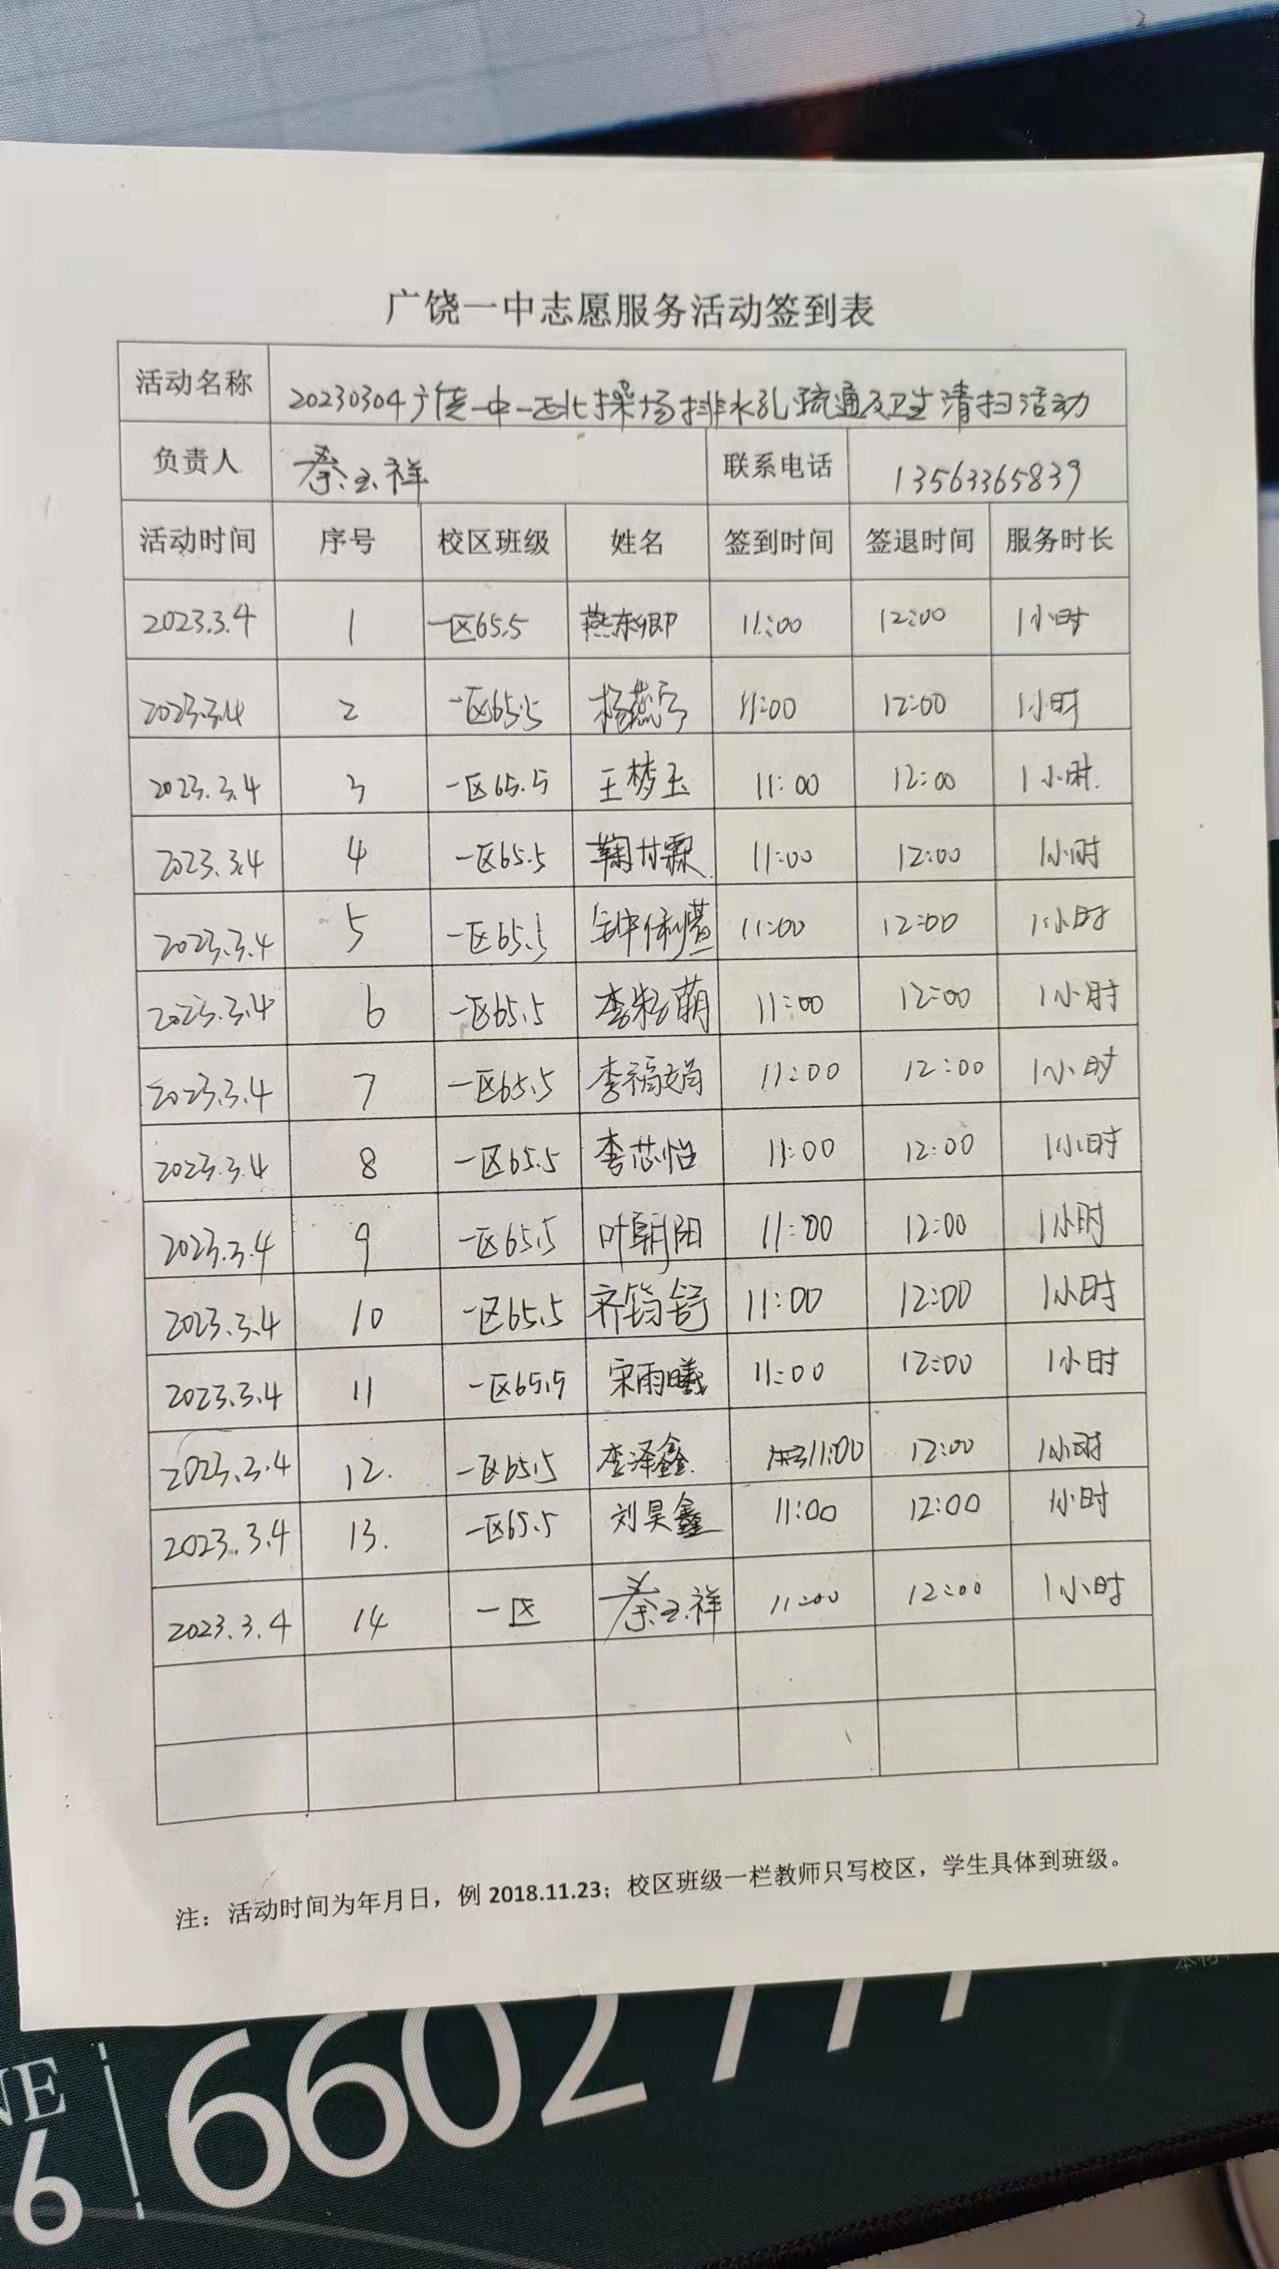 广饶一中志愿服务活动签到表
活动名称 20230304广饶一中一区北操场排水孔疏通及卫生清扫活动
负责人 秦玉祥 联系电话 13563365839
活动时间 序号 校区班级 姓名 签到时间 签退时间 服务时长
2023.3.4 1 一区65.5 燕东卿 11:00 12:00 1小时
2023.3.4 2 一区65.5 杨燕宁 11:00 12:00 1小时
2023.3.4 3 一区65.5 王梦玉 11:00 12:00 1小时.
2023.3.4 4 一区65.5 鞠甘霖 11:00 12:00 1小时
2023.3.4 5 一区65.5 11:00 12:00 1小时
2023.3.4 6 一区65.5 11:00 12:00 1小时
2023.3.4 7 一区65.5 11:00 12:00 1小时
2023.3.4 8 一区65.5 李芯怡 11:00 12:00 1小时
2023.3.4 9 一区65.5 叶朝阳 11:00 12:00 1小时
2023.3.4 10 一区65.5 齐筠舒 11:00 12:00 1小时
2023.3.4 11 一区65.5 宋雨曦 11:00 12:00 1小时
2023.3.4 12. 一区65.5 李泽鑫 11:00 12:00 1小时
2023.3.4 13. 一区65.5 刘昊鑫 11:00 12:00 1小时
2023.3.4 14 一区 秦玉祥 11:00 12:00 1小时
注：活动时间为年月日，例 2018.11.23；校区班级一栏教师只写校区，学生具体到班级。
NE
6 6602777